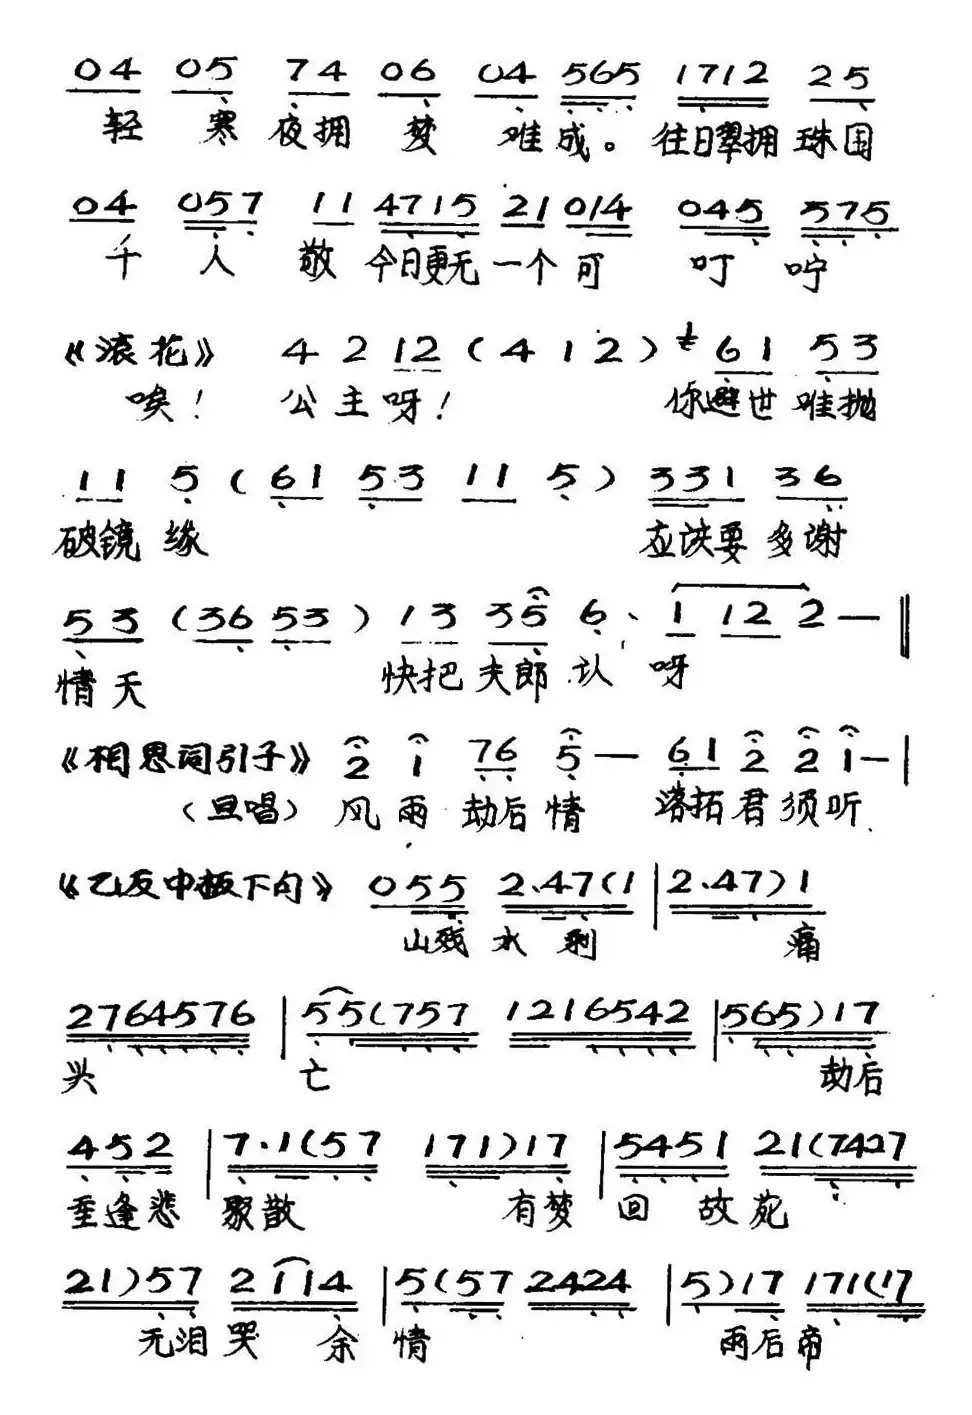 04 05 74 06 04 565 1712 25
轻 寒 夜拥 梦 难成。 往日翠拥 珠围
04 057 11 4715 21 014 045 575
千 人 敬 今日更无 一个 可 叮 咛
《滚花》 4 2 12 (4 1 2) 61 53
唉! 公主呀! 你避世 难抛
11 5 (61 53 11 5) 331 36
破镜 缘 应该要 多谢
53 (36 53) 13 35 6. 1 12 2 — ‖
情天 快把 夫郎 认 呀
《相思词引子》 2 1 76 5 — 61 2 2 1 — |
(旦唱) 风 雨 劫后 情 落拓 君 须 听
《乙反中板下句》 055 2.47(1 | 2.47)1
山残 水 剩 痛
2764576 | 55(757 1216542 | 565)17
兴 亡 劫后
452 | 7.1(57 171)17 | 5451 21(7427
重逢悲 聚散 有梦 回 故苑
21)57 2114 | 5(57 2424 | 5)17 171(17
无泪 哭 余 情 雨后 帝